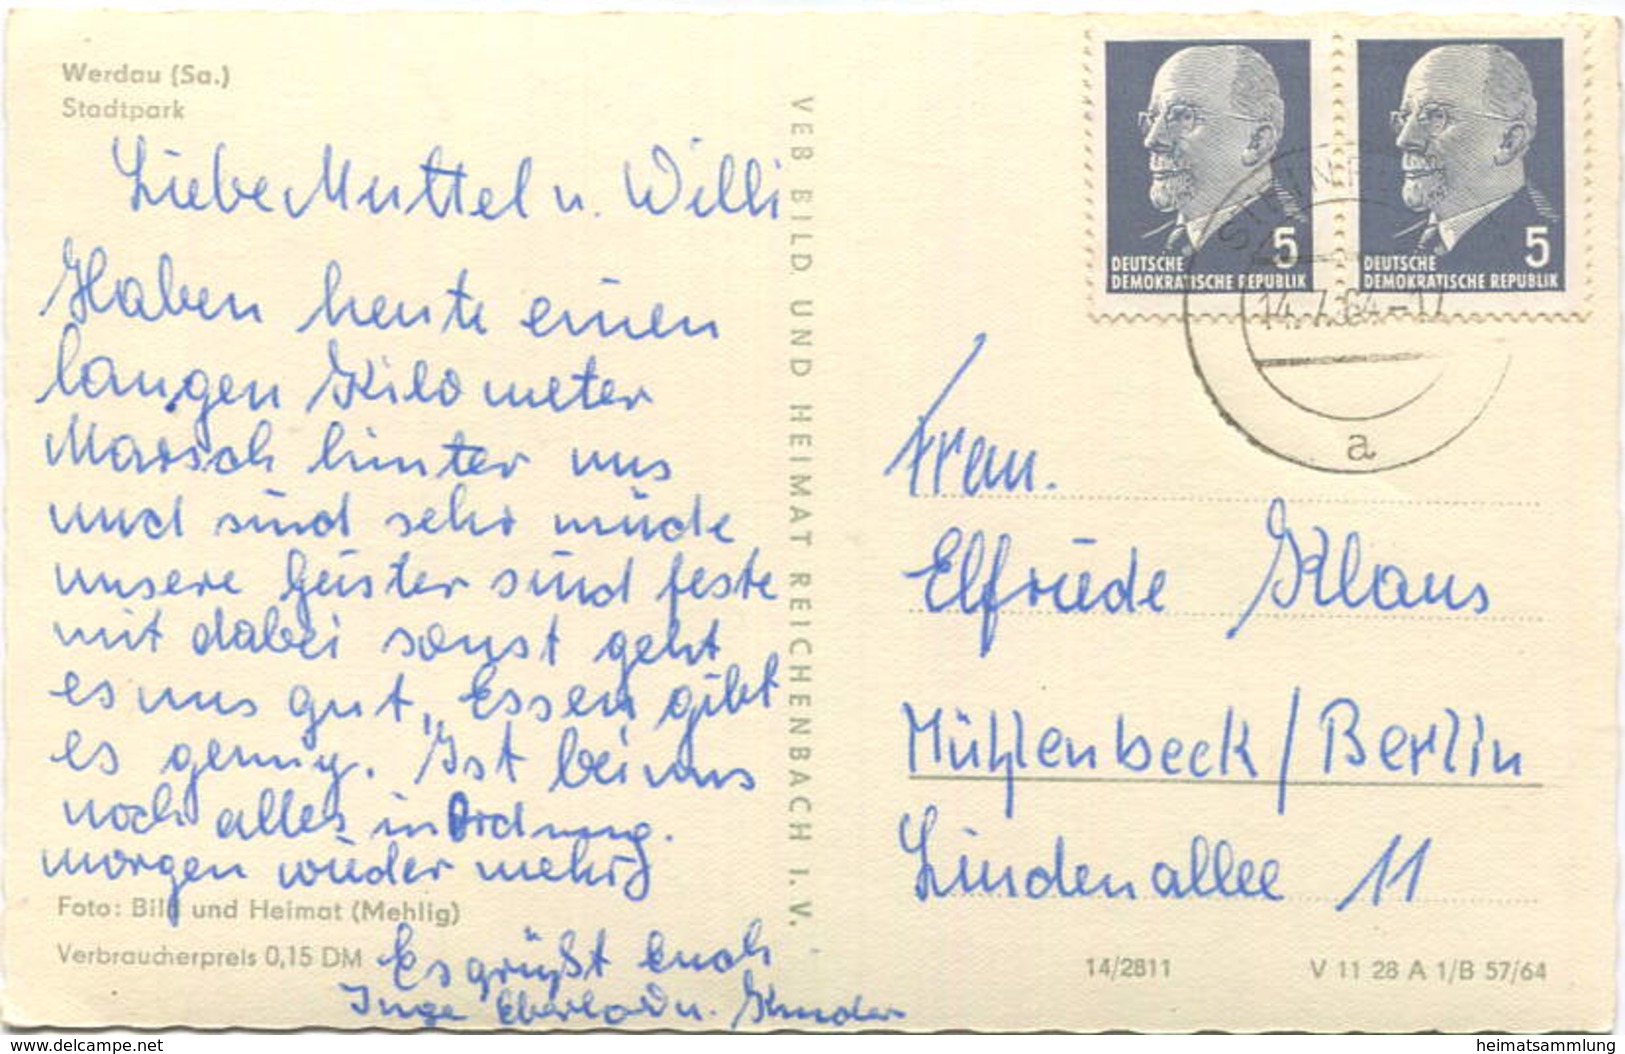 Werdau (Sa.)
Stadtpark
Liebe Muttel u. Willi
Haben heute einen
langen Kilometer
Marsch hinter uns
und sind sehr müde
unsere Geister sind feste
mit dabei sonst geht
es uns gut, Essen gibt
es genug. Ist bei uns
noch alles in Ordnung.
morgen wieder mehr
Foto: Bild und Heimat (Mehlig)
Verbraucherpreis 0,15 DM
Es grüßt Euch
Inge Eberhard u. Kinder
VEB BILD UND HEIMAT REICHENBACH I. V.
5
DEUTSCHE
DEMOKRATISCHE REPUBLIK
5
DEUTSCHE
DEMOKRATISCHE REPUBLIK
14.7.64-17
a
Frau.
Elfriede Klaus
Mühlenbeck/Berlin
Lindenallee 11
14/2811
V 11 28 A 1/B 57/64
www.delcampe.net
heimatsammlung